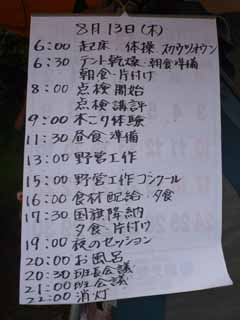 8月13日(木)
6:00 起床・体操 スクウツオウン
6:30 テント乾燥・朝食準備
朝食・片付け
8:00 点検開始
点検講評
9:00 木こり体験
11:30 昼食・準備
13:00 野営工作
15:00 野営工作コンクール
16:00 食材配給・夕食
17:30 国旗降納
夕食・片付け
19:00 夜のセッション
20:00 お風呂
20:30 班長会議
21:00 班会議
22:00 消灯